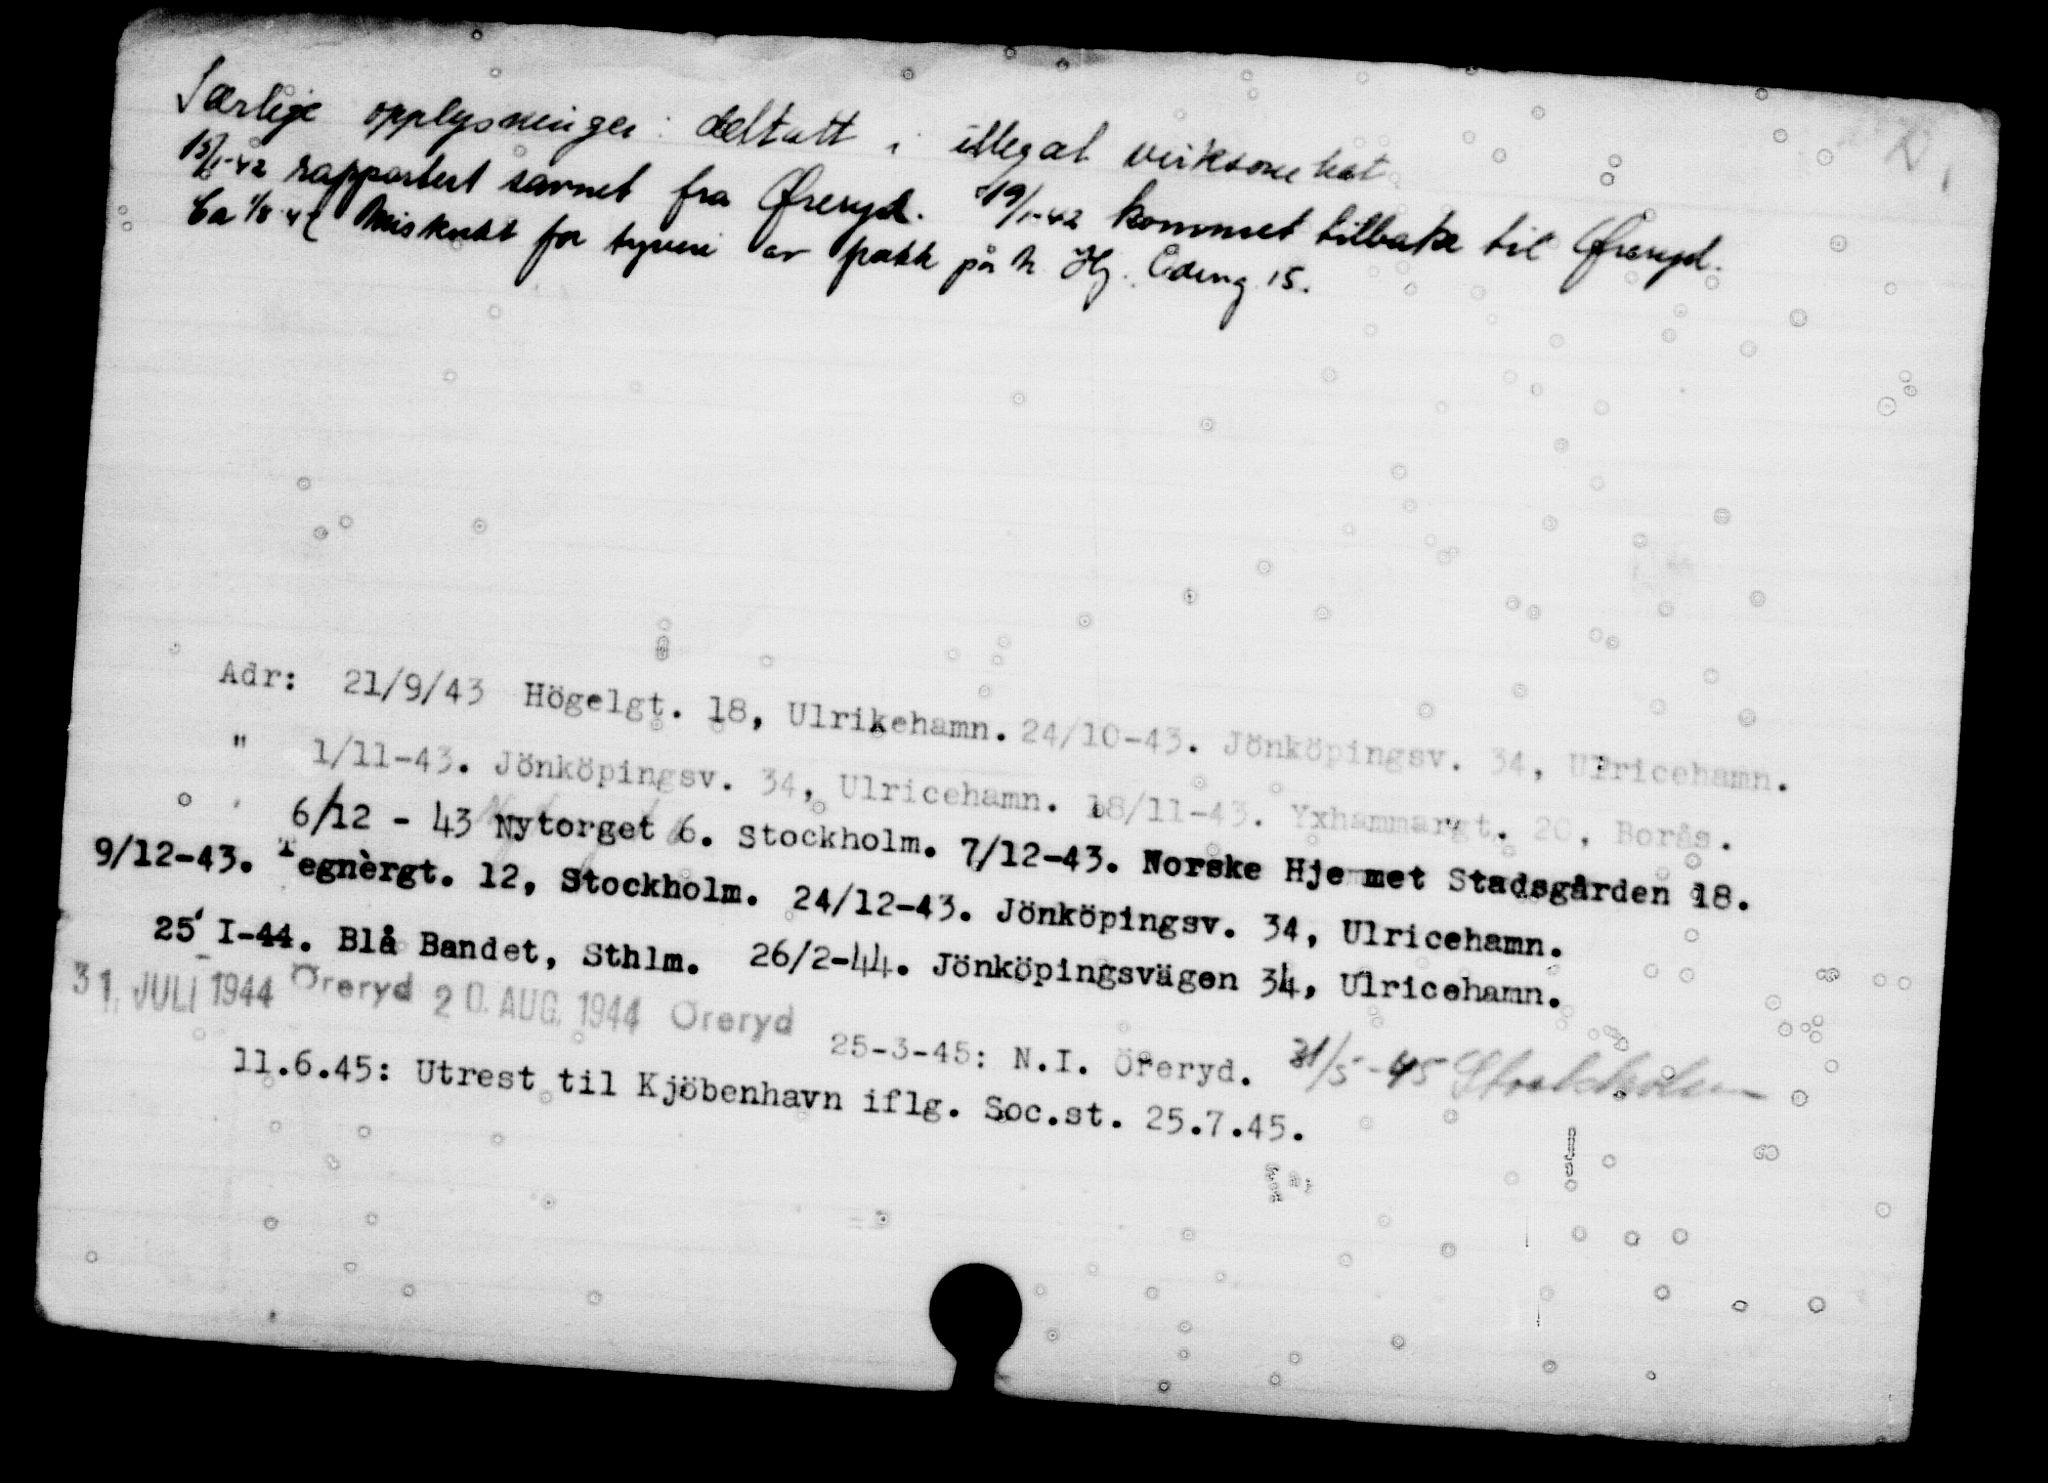 Særlige opplysninger: deltatt i illegal virksomhet
15/1-42 rapportert savnet fra Øreryd. 19/1-42 kommet tilbake til Øreryd.
Ca 1/8 42 Mistenkt for tyveri av frakk på N. Hj. Åding 15.
Adr: 21/9/43 Högelgt. 18, Ulrikehamn. 24/10-43. Jönköpingsv. 34, Ulricehamn.
" 1/11-43. Jönköpingsv. 34, Ulricehamn. 18/11-43. Yxhammargt. 20, Borås.
6/12 - 43 Nytorget 6. Stockholm. 7/12-43. Norske Hjemmet Stadsgården 18.
9/12-43. Tegnèrgt. 12, Stockholm. 24/12-43. Jönköpingsv. 34, Ulricehamn.
25 I-44. Blå Bandet, Sthlm. 26/2-44. Jönköpingsvägen 34, Ulricehamn.
31. JULI 1944 Öreryd 20. AUG. 1944 Öreryd
25-3-45: N.I. Öreryd. 31/5-45 Stockholm
11.6.45: Utrest til Kjöbenhavn iflg. Soc.st. 25.7.45.